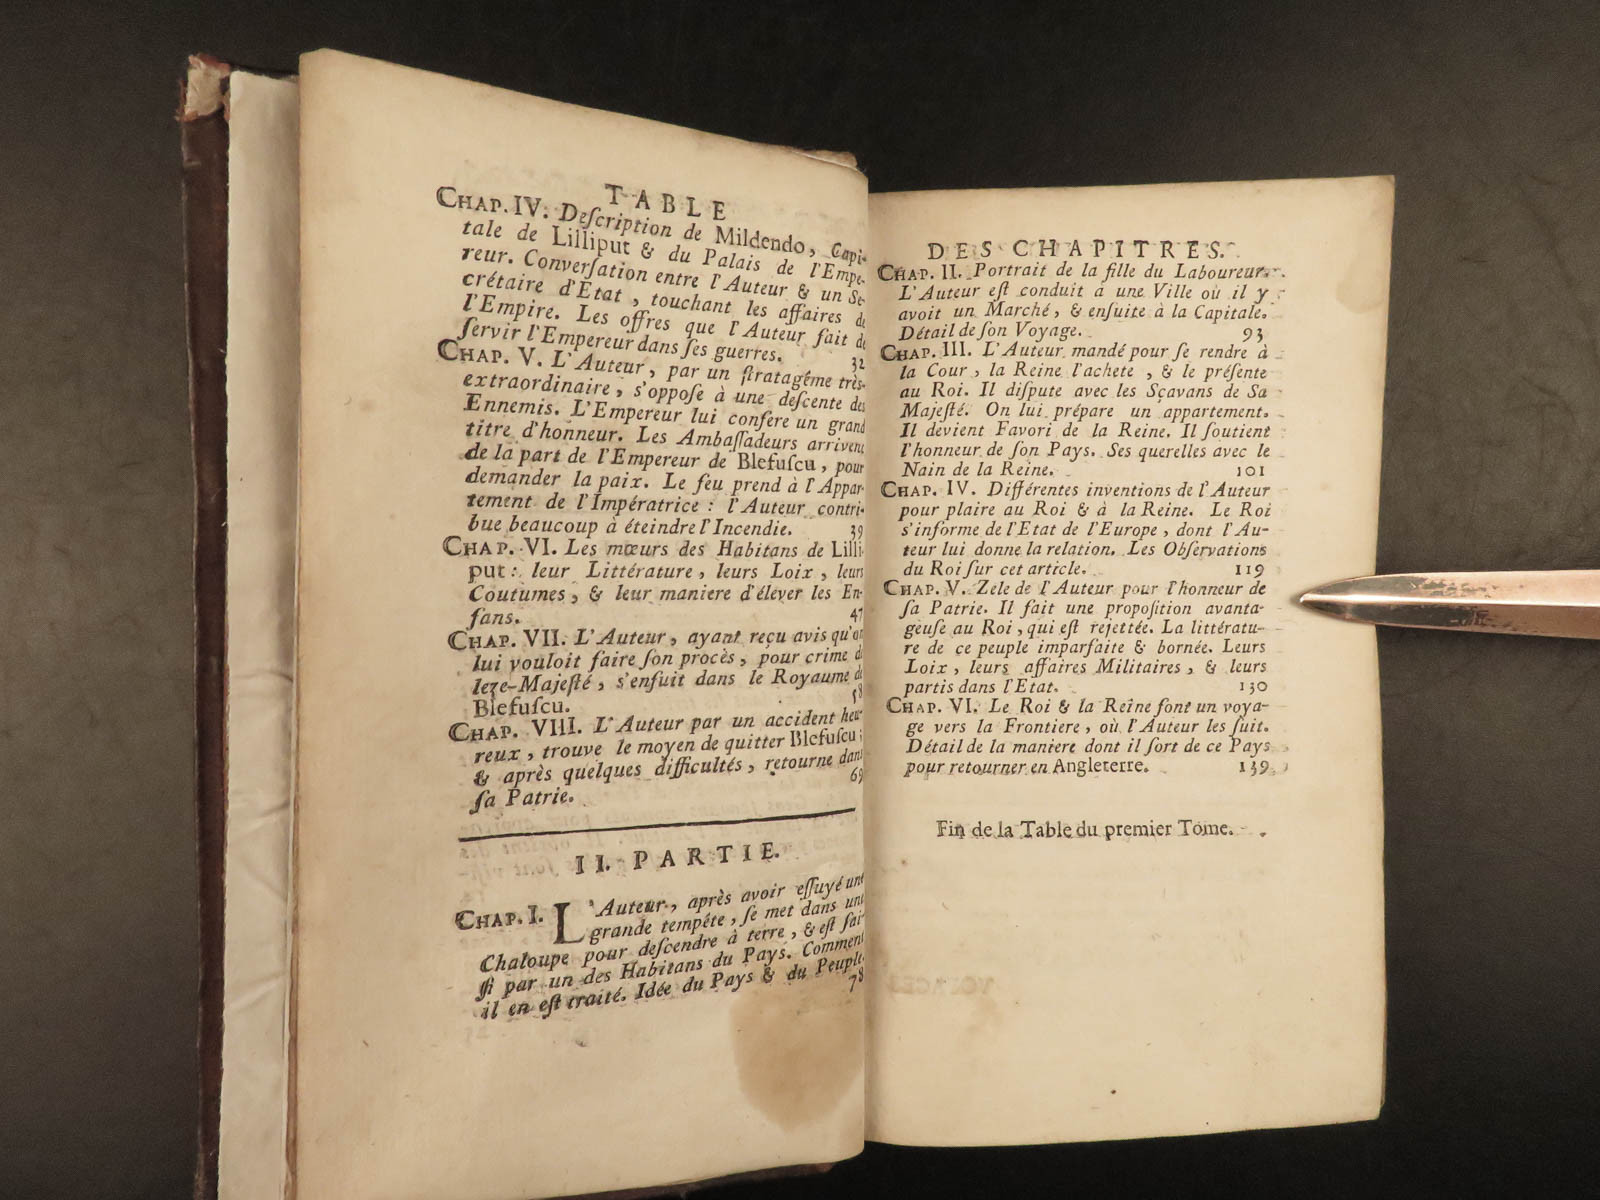 TABLE
CHAP. IV. Deſcription de Mildendo, Capi-
tale de Lilliput & du Palais de l'Empe-
reur. Converſation entre l'Auteur & un Se-
crétaire d'Etat, touchant les affaires de
l'Empire. Les offres que l'Auteur fait de
ſervir l'Empereur dans ſes guerres. 32
CHAP. V. L'Auteur, par un ſtratagême très-
extraordinaire, s'oppoſe à une deſcente des
Ennemis. L'Empereur lui confere un grand
titre d'honneur. Les Ambaſſadeurs arrivent
de la part de l'Empereur de Blefuſcu, pour
demander la paix. Le feu prend à l'Appar-
tement de l'Impératrice : l'Auteur contri-
bue beaucoup à éteindre l'Incendie. 39
CHAP. VI. Les mœurs des Habitans de Lilli-
put : leur Littérature, leurs Loix, leurs
Coutumes, & leur maniere d'élever les En-
fans. 47
CHAP. VII. L'Auteur, ayant reçu avis qu'on
lui vouloit faire ſon procès, pour crime de
leze-Majeſté, s'enfuit dans le Royaume de
Blefuſcu. 58
CHAP. VIII. L'Auteur par un accident heu-
reux, trouve le moyen de quitter Blefuſcu ;
& après quelques difficultés, retourne dans
ſa Patrie. 69
II. PARTIE.
CHAP. I. L'Auteur, après avoir eſſuyé une
grande tempête, ſe met dans une
Chaloupe pour deſcendre à terre, & eſt ſai-
ſi par un des Habitans du Pays. Comment
il en eſt traité. Idée du Pays & du Peuple.
78
DES CHAPITRES.
CHAP. II. Portrait de la fille du Laboureur.
L'Auteur eſt conduit à une Ville où il y
avoit un Marché, & enſuite à la Capitale.
Détail de ſon Voyage. 93
CHAP. III. L'Auteur mandé pour ſe rendre à
la Cour, la Reine l'achete, & le préſente
au Roi. Il diſpute avec les Sçavans de Sa
Majeſté. On lui prépare un appartement.
Il devient Favori de la Reine. Il ſoutient
l'honneur de ſon Pays. Ses querelles avec le
Nain de la Reine. 101
CHAP. IV. Différentes inventions de l'Auteur
pour plaire au Roi & à la Reine. Le Roi
s'informe de l'Etat de l'Europe, dont l'Au-
teur lui donne la relation. Les Obſervations
du Roi ſur cet article. 119
CHAP. V. Zéle de l'Auteur pour l'honneur de
ſa Patrie. Il fait une propoſition avanta-
geuſe au Roi, qui eſt rejettée. La littératu-
re de ce peuple imparfaite & bornée. Leurs
Loix, leurs affaires Militaires, & leurs
partis dans l'Etat. 130
CHAP. VI. Le Roi & la Reine font un voya-
ge vers la Frontiere, où l'Auteur les ſuit.
Détail de la maniere dont il ſort de ce Pays
pour retourner en Angleterre. 139
Fin de la Table du premier Tome.